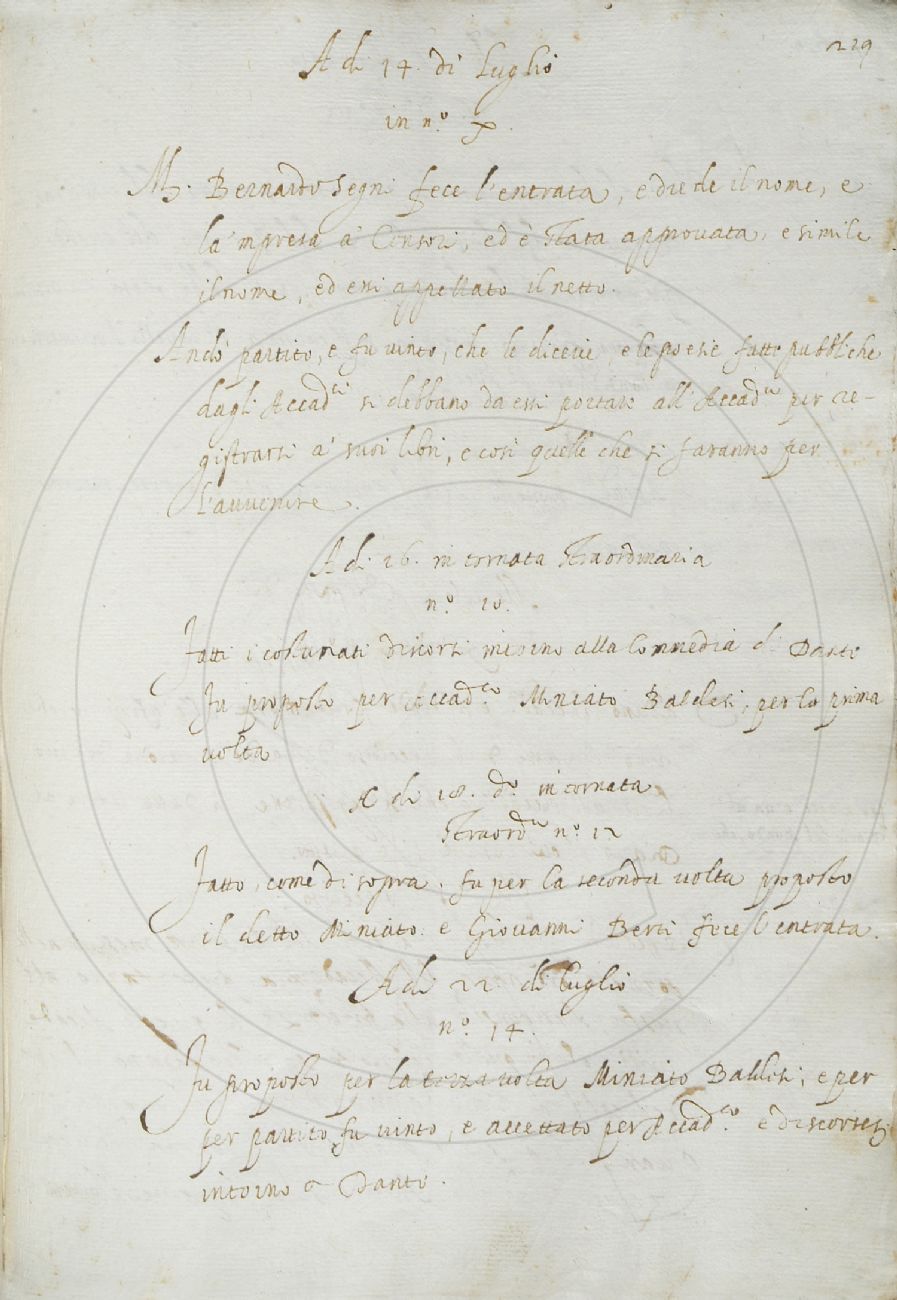 229
A di 14. di Luglio
in n.o X.
M. Bernardo Segni fece l'entrata, e diede il nome, e
la 'mpresa a' Censori, ed è stata approvata, e simile
il nome, ed essi appellato il netto.
Andò partito, e fu vinto, che le dicerie, e le poesie fatte pubbliche
dagli Accad.ci si debbano da essi portare all'Accad.a per re-
gistrarsi a' suoi libri, e così quelle che si faranno per
l'avvenire.
A di 16. in tornata straordinaria
n.o 10.
Fatti i costumati discorsi intorno alla Commedia di Dante
fu proposto per Accad.co Miniato Baldesi, per la prima
volta
A di 18. d.o in tornata
straord.a n.o 12
Fatto, come di sopra. fu per la seconda volta proposto
il detto Miniato. e Giovanni Berti fece l'entrata.
A di 22 di Luglio
n.o 14.
Fu proposto per la terza volta Miniato Baldesi; e per
per partito fu vinto, e accettato per Accad.co e discorsesi
intorno a Dante.